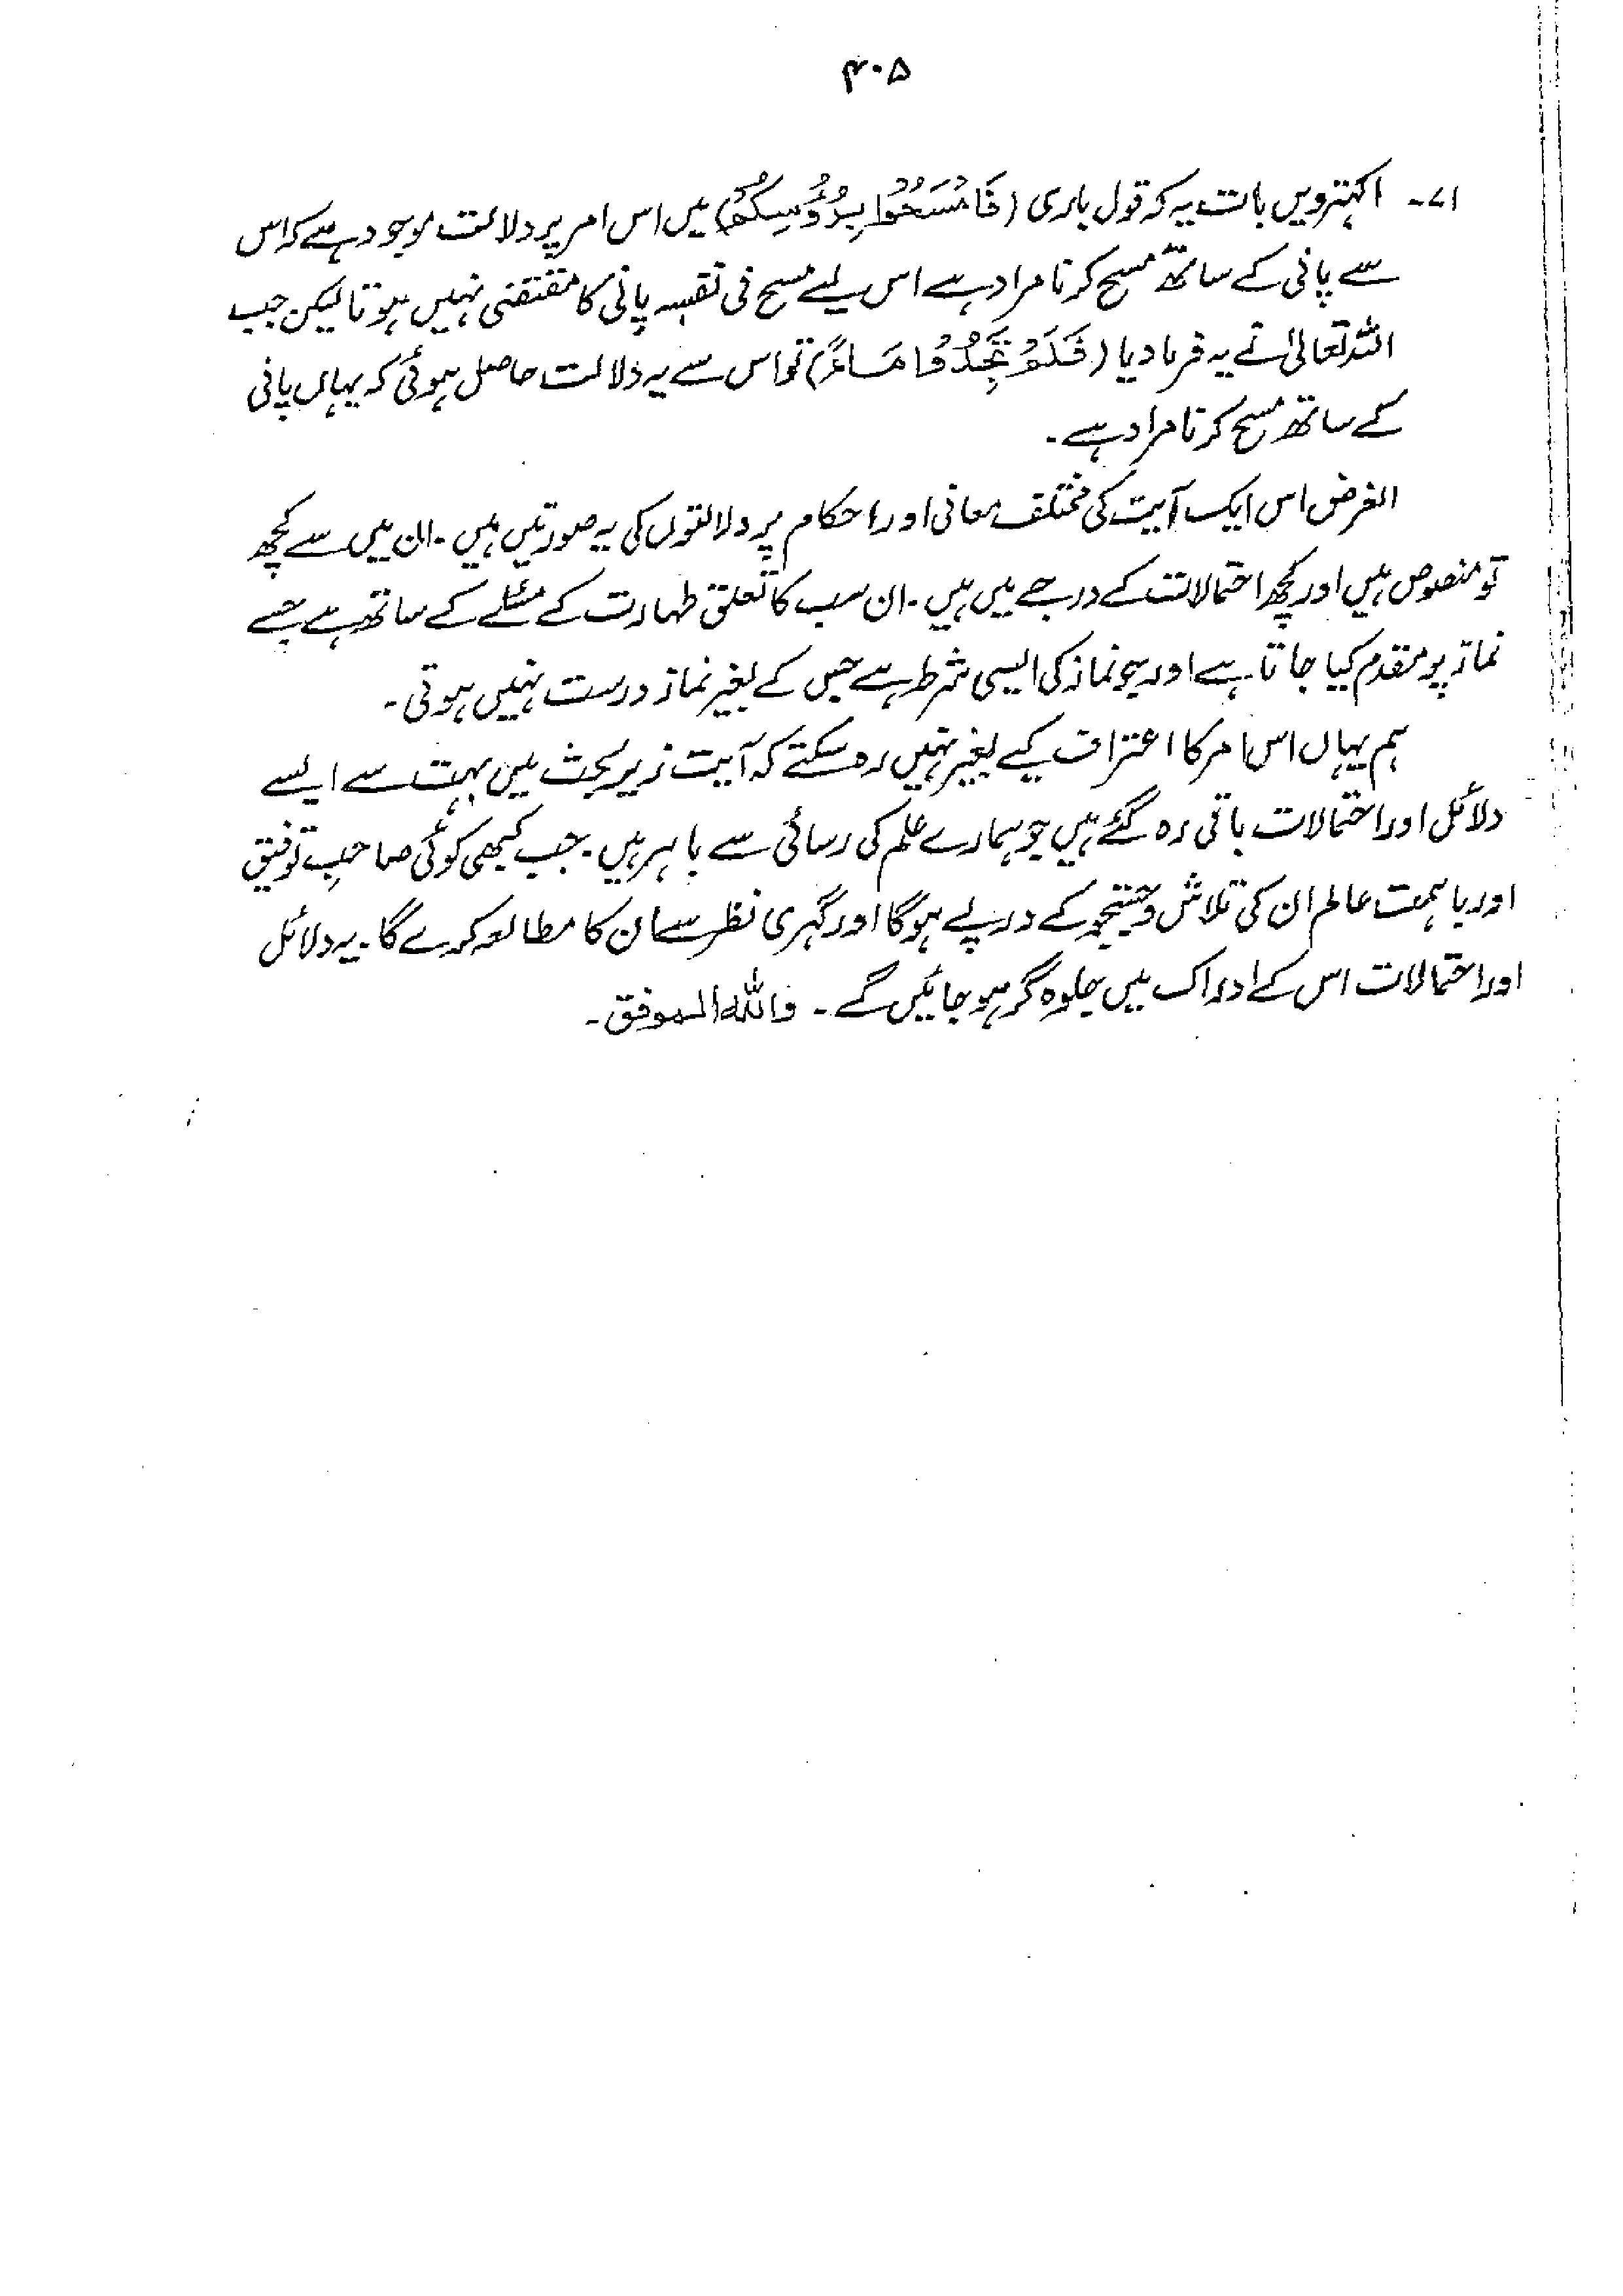 ۴۰۵
۷۱۔ اکہترویں بات یہ کہ قول باری (فَامْسَحُوْا بِرُؤُسِكُمْ) میں اس امر پر دلالت موجود ہے کہ اس
سے پانی کے ساتھ مسح کرنا مراد ہے اس لیے مسح فی نفسہٖ پانی کا مقتضی نہیں ہوتا لیکن جب
اللہ تعالیٰ نے یہ فرما دیا (فَلَمْ تَجِدُوْا مَاءً) تو اس سے یہ دلالت حاصل ہوئی کہ یہاں پانی
کے ساتھ مسح کرنا مراد ہے۔
الغرض اس ایک آیت کی مختلف معانی اور احکام پر دلالتوں کی یہ صورتیں ہیں۔ ان میں سے کچھ
تو منصوص ہیں اور کچھ احتمالات کے درجے میں ہیں۔ ان سب کا تعلق طہارت کے مسئلے کے ساتھ ہے جسے
نماز پر مقدم کیا جاتا ہے اور جو نماز کی ایسی شرط ہے جس کے بغیر نماز درست نہیں ہوتی۔
ہم یہاں اس امر کا اعتراف کیے بغیر نہیں رہ سکتے کہ آیت زیر بحث میں بہت سے ایسے
دلائل اور احتمالات باقی رہ گئے ہیں جو ہمارے علم کی رسائی سے باہر ہیں۔ جب کبھی کوئی صاحبِ توفیق
اور باہمت عالم ان کی تلاش و جستجو کے درپے ہوگا اور گہری نظر سے ان کا مطالعہ کرے گا۔ یہ دلائل
اور احتمالات اس کے ادراک میں جلوہ گر ہو جائیں گے۔ واللہ الموفق۔